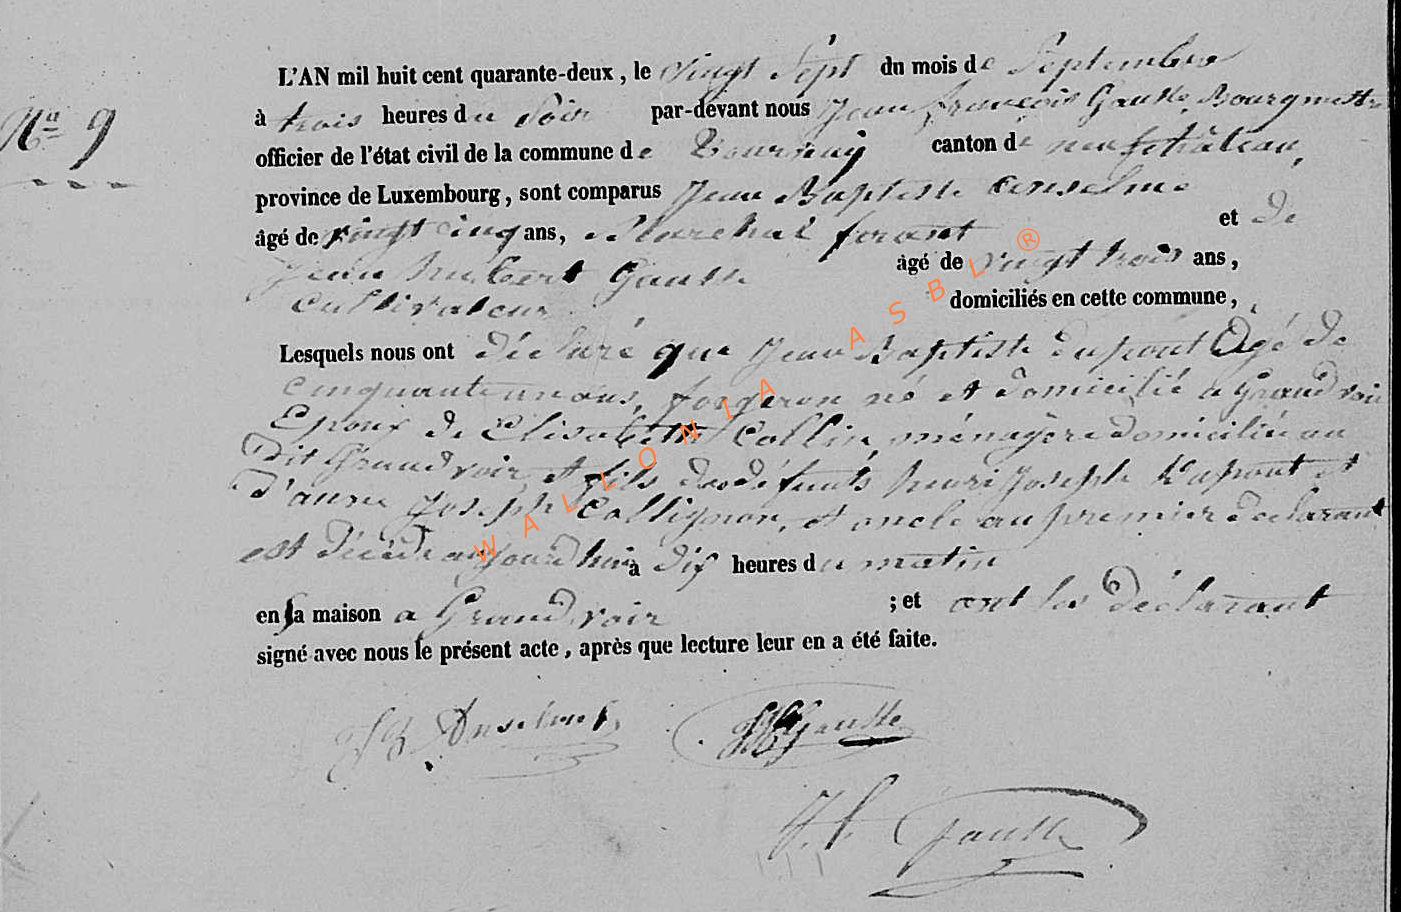 N° 9
L'AN mil huit cent quarante-deux, le vingt Sept du mois de Septembre
à trois heures du Soir par-devant nous Jean françois Gausse Bourgmestre
officier de l'état civil de la commune de Tournay canton de neufchâteau,
province de Luxembourg, sont comparus Jean Baptiste anselme
âgé de vingt cinq ans, Marechal ferant et de
Jean hubert Gausse âgé de vingt trois ans,
Cultivateur domiciliés en cette commune,
Lesquels nous ont déclaré que Jean Baptiste dupont âgé de
cinquante un ans, forgeron né et domicilié a Grandvoir
Epoux de Elisabeth Collin, ménagère domiciliée au
Dit Grandvoir, et fils des défunts henri Joseph Dupont et
d'anne Joseph Collignon, et oncle au premier declarant
est décédé aujourd'hui à dix heures du matin
en sa maison a Grandvoir ; et ont les déclarant
signé avec nous le présent acte, après que lecture leur en a été faite.
JB Anselme JH Gausse
J.f. Gausse
WALLONIA ASBL ®